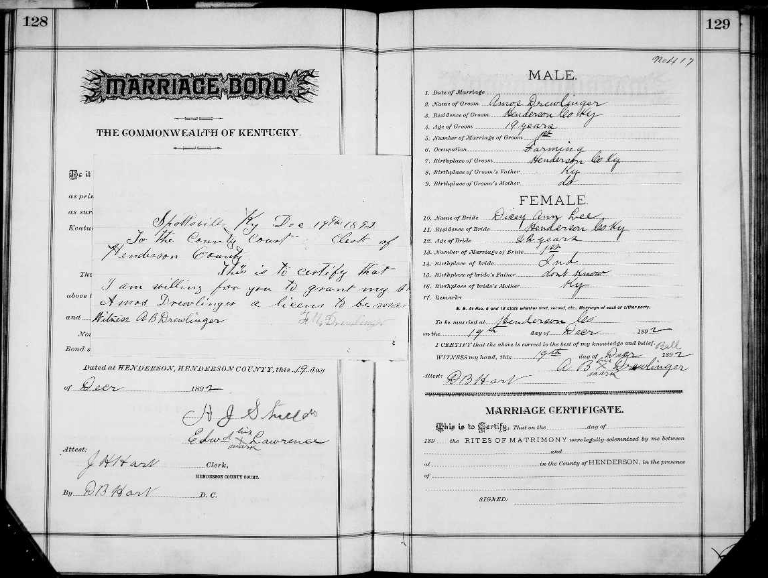 128
MARRIAGE BOND.
THE COMMONWEALTH OF KENTUCKY.
Be it
as prin
as sur
Kentu
Spottsvill Ky Dec 19th 1892
To the County Court Clerk of
Henderson County
The
This is to certify that
I am willing for you to grant my
above
Amos Drewlinger a licens to be
and
Witness A B Drewlinger
No
Bond s
Dated at HENDERSON, HENDERSON COUNTY, this 19 day
of Decr 1892
A J Shields
Edwd his x mark Lawrence
Attest:
J H Hart Clerk,
HENDERSON COUNTY COURT.
By D B Hart D. C.
129
No 417
MALE.
1. Date of Marriage
2. Name of Groom Amos Drewlinger
3. Residence of Groom Henderson Co Ky
4. Age of Groom 19 years
5. Number of Marriage of Groom 1st
6. Occupation Farming
7. Birthplace of Groom Henderson Co Ky
8. Birthplace of Groom's Father Ky
9. Birthplace of Groom's Mother do
FEMALE.
10. Name of Bride Dicey Ann Lee
11. Residence of Bride Henderson Co Ky
12. Age of Bride years
13. Number of Marriage of Bride 1st
14. Birthplace of Bride Ind
15. Birthplace of bride's Father dont know
16. Birthplace of bride's Mother Ky
17. Remarks
To be married at Henderson Co
on the 19th day of Decr 1892
I CERTIFY that the above is correct to the best of my knowledge and belief.
WITNESS my hand, this 19th day of Decr 1892
A B his x mark Drewlinger
Attest: D B Hart
MARRIAGE CERTIFICATE.
This is to Certify, That on the day of
189 the RITES OF MATRIMONY were legally solemnized by me between
and
at in the County of HENDERSON, in the presence
of
SIGNED: